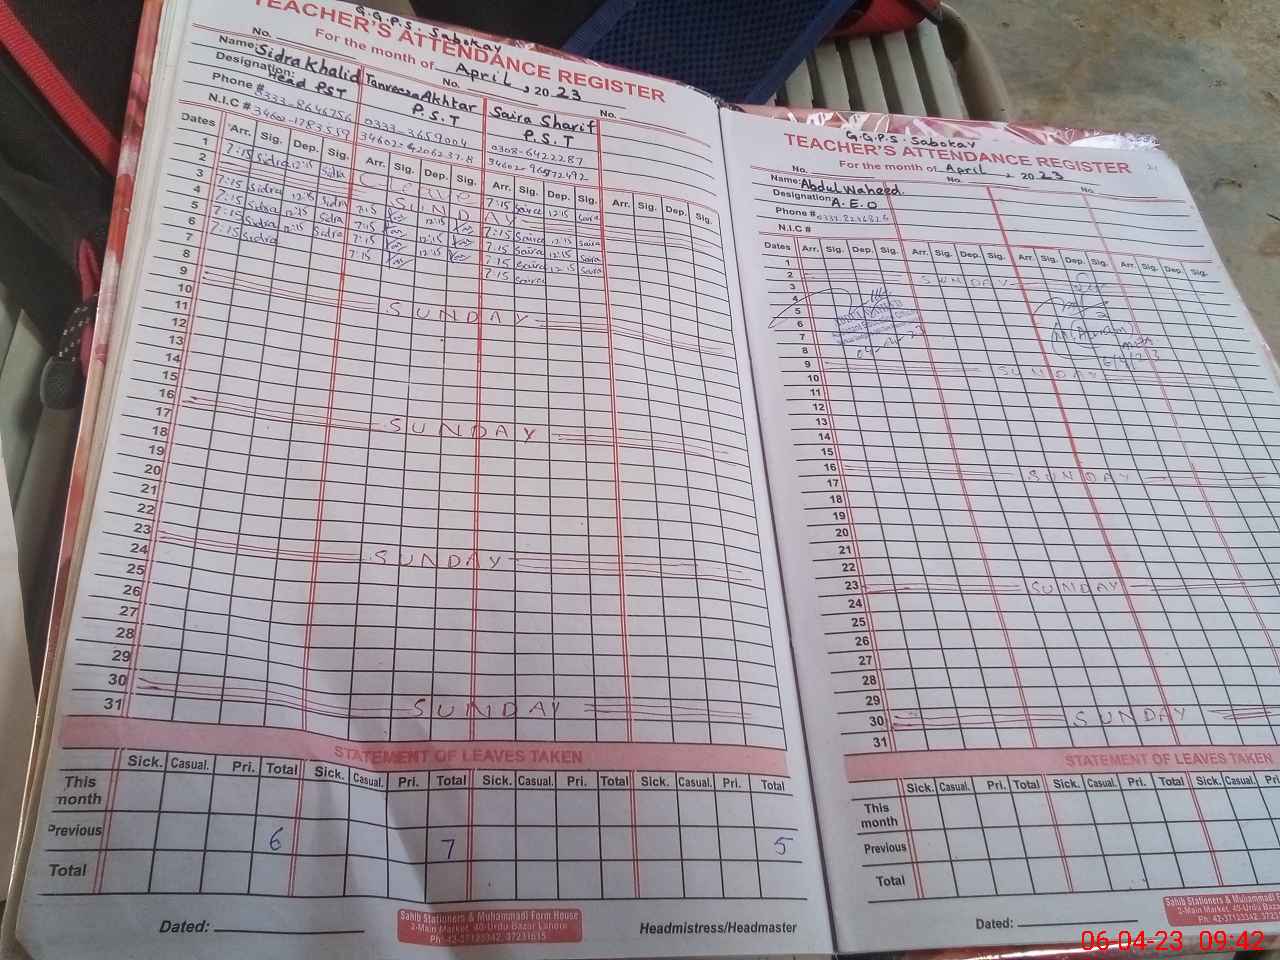 G.G.P.S. Sabokay
TEACHER'S ATTENDANCE REGISTER
For the month of April, 2023
No. No. No.
Name: Sidra Khalid Akhtar Saira Sharif
Designation: Head PST P.S.T P.S.T
Phone # 0333-8646756 0333-3659004 0308-6422287
N.I.C #
Dates Arr. Sig. Dep. Sig. Arr. Sig. Dep. Sig. Arr. Sig. Dep. Sig. Arr. Sig. Dep. Sig.
1 7:15 Sidra 12:15 Sidra Leave 7:15 Saira 12:15 Saira
2 SUNDAY
3 7:15 Sidra 12:15 Sidra 7:15 12:15 7:15 Saira 12:15 Saira
4 7:15 Sidra 12:15 Sidra 7:15 12:15 7:15 Saira 12:15 Saira
5 7:15 Sidra 12:15 Sidra 7:15 12:15 7:15 Saira 12:15 Saira
6 7:15 Sidra 7:15 7:15 Saira
7
8
9 SUNDAY
10
11
12
13
14
15
16 SUNDAY
17
18
19
20
21
22
23 SUNDAY
24
25
26
27
28
29
30 SUNDAY
31
STATEMENT OF LEAVES TAKEN
Sick. Casual. Pri. Total Sick. Casual. Pri. Total Sick. Casual. Pri. Total Sick. Casual. Pri. Total
This month
Previous 6 7 5
Total
Dated:
Sahib Stationers & Muhammadi Form House
2-Main Market, 40-Urdu Bazar Lahore
Ph: 42-37123342, 37231615
Headmistress/Headmaster
G.G.P.S. Sabokay
TEACHER'S ATTENDANCE REGISTER
For the month of April, 2023
No. No. No.
Name: Abdul Waheed.
Designation A.E.O
Phone #
N.I.C #
Dates Arr. Sig. Dep. Sig. Arr. Sig. Dep. Sig. Arr. Sig. Dep. Sig. Arr. Sig. Dep. Sig.
1
2 SUNDAY
3
4
5
6
7
8
9 SUNDAY
10
11
12
13
14
15
16 SUNDAY
17
18
19
20
21
22
23 SUNDAY
24
25
26
27
28
29
30 SUNDAY
31
STATEMENT OF LEAVES TAKEN
Sick. Casual. Pri. Total Sick. Casual. Pri. Total Sick. Casual. Pri.
This month
Previous
Total
Dated:
Sahib Stationers & Muhammadi
2-Main Market, 40-Urdu Bazar
Ph: 42-37123342, 3723
06-04-23 09:42